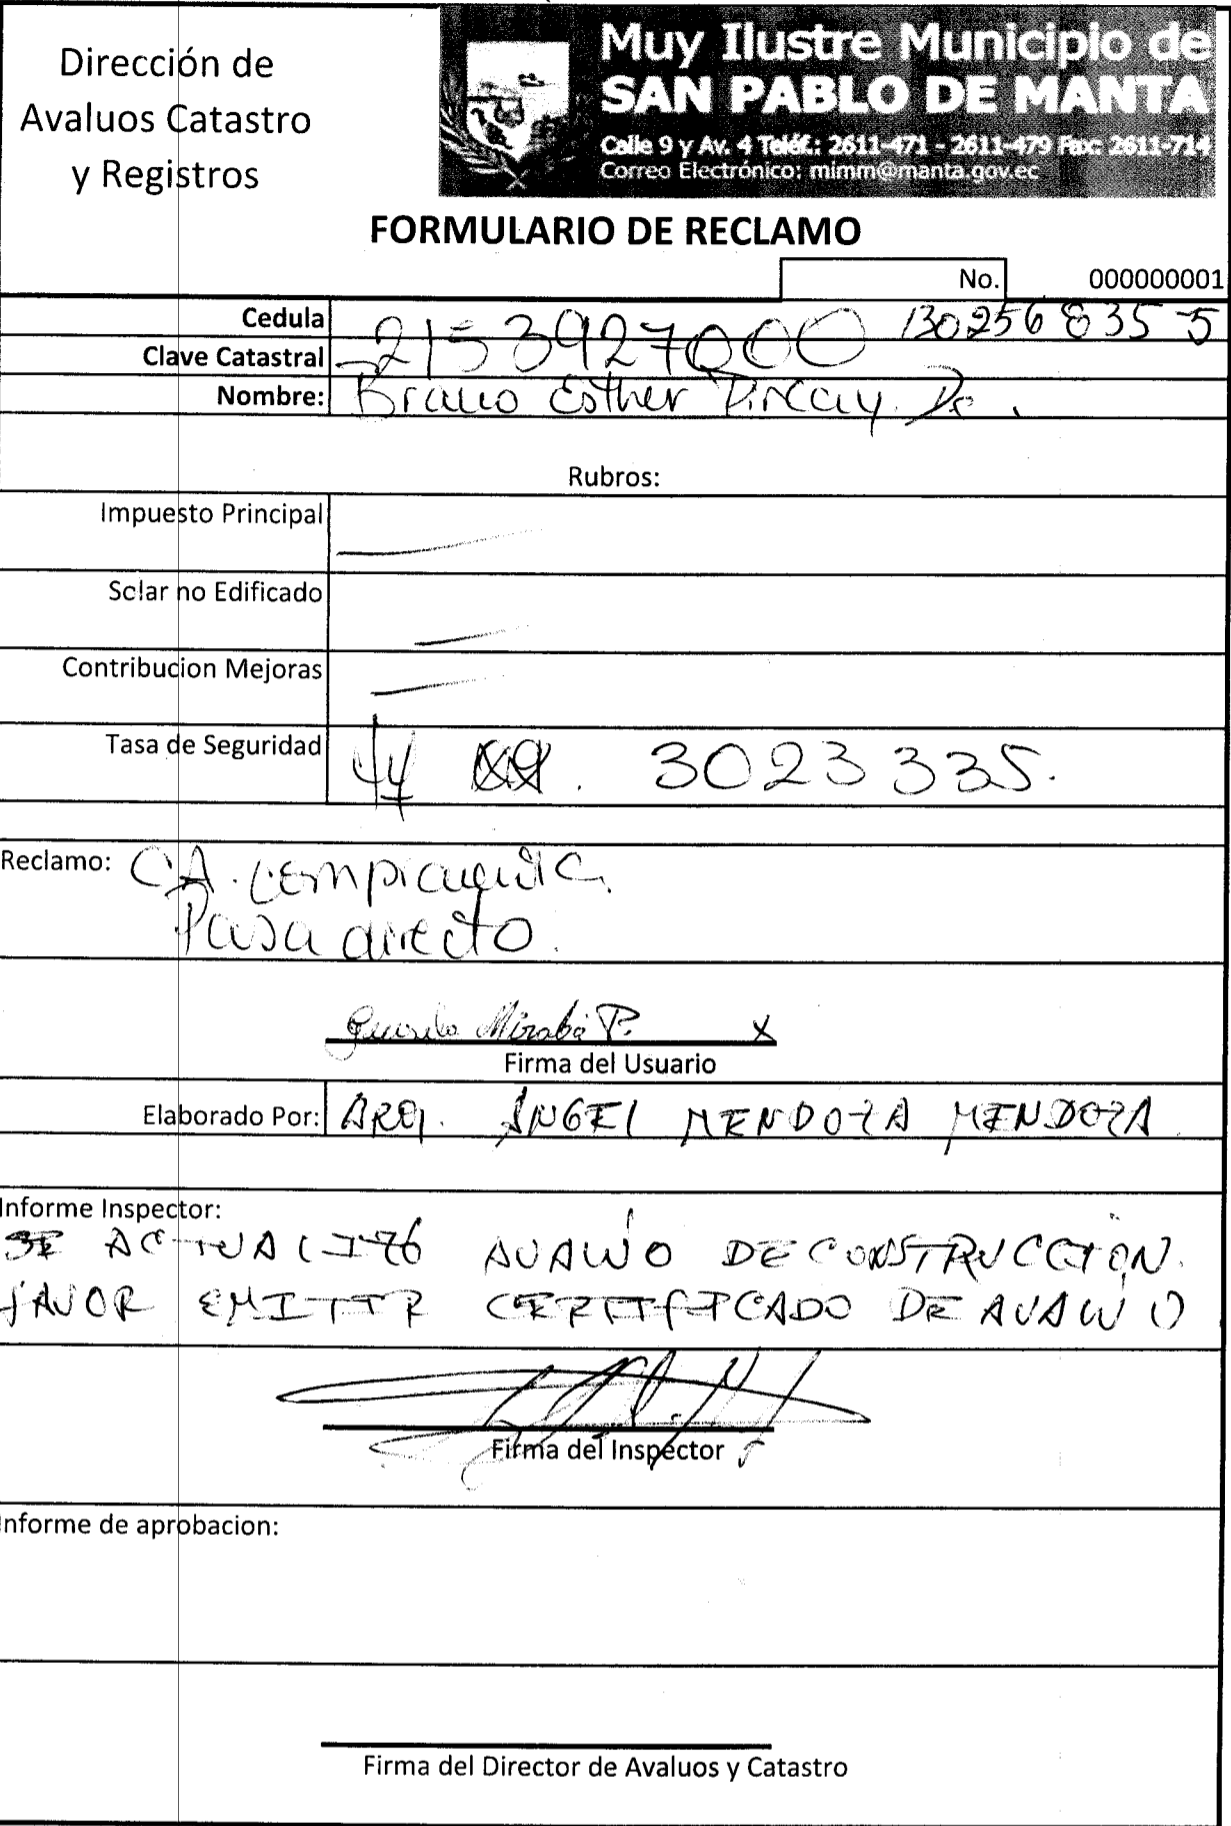 Dirección de
Avaluos Catastro
y Registros
Muy Ilustre Municipio de
SAN PABLO DE MANTA
Calle 9 y Av. 4 Teléf.: 2611-471 - 2611-479 Fax: 2611-714
Correo Electrónico: mimm@manta.gov.ec
FORMULARIO DE RECLAMO
No. 000000001
Cedula 130256835-5
Clave Catastral 2153927000
Nombre: Bravo Esther Pincay De.
Rubros:
Impuesto Principal
Solar no Edificado
Contribucion Mejoras
Tasa de Seguridad 3023335.
Reclamo: CA.
Pasa directo.
Mirabá P. X
Firma del Usuario
Elaborado Por: ARQ. ÁNGEL MENDOZA MENDOZA
Informe Inspector:
SE ACTUALIZÓ AVALÚO DE CONSTRUCCIÓN.
FAVOR EMITIR CERTIFICADO DE AVALUO
Firma del Inspector
Informe de aprobacion:
Firma del Director de Avaluos y Catastro